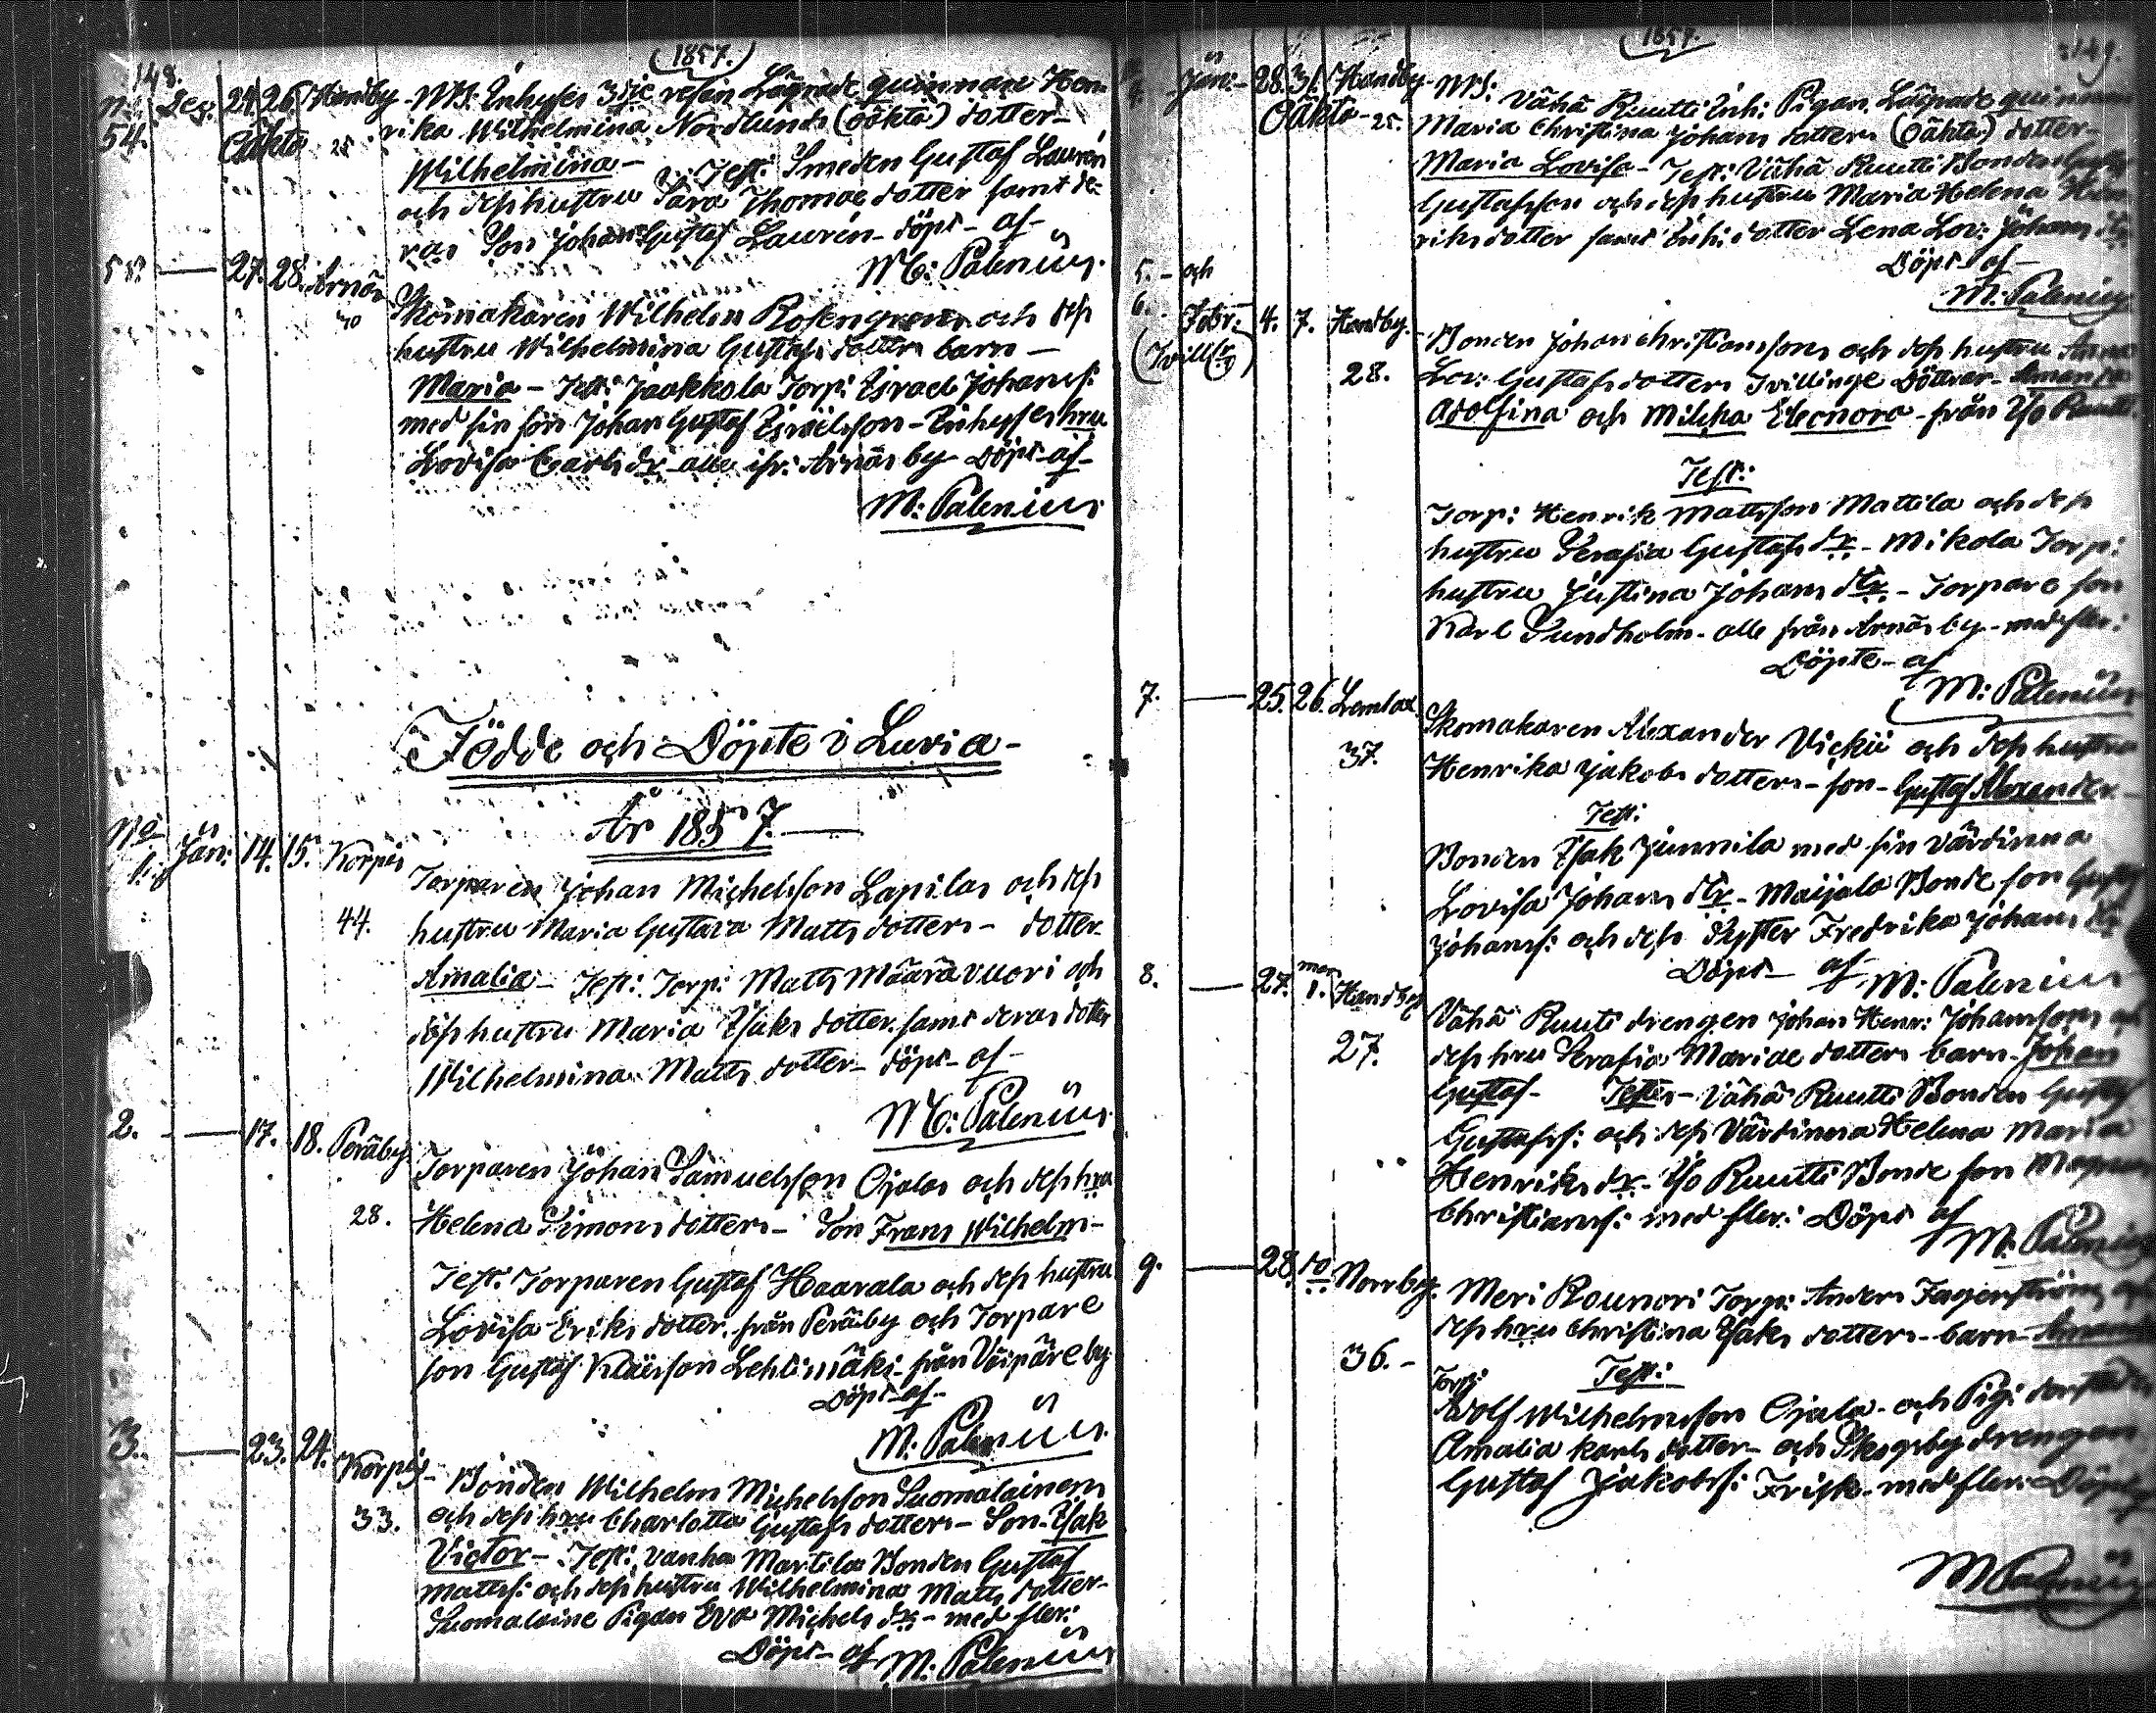 148.
(1857.)
No 54. Dec. 24. 26. Handby - NB: Inhyses 3dje resan Lägrade quinnans Hen-
Oäkta 25 rika Wilhelmina Nordlunds (oäkta) dotter -
Wilhelmina - Test: Smeden Gustaf Laurén
och dess hustru Sara Thomae dotter samt de-
ras Son Johan Gustaf Laurén - döpt - af -
M: Palenius.
27. 28. Arnäs Skomakaren Wilhelm Rosengrens och dess
30 hustru Wilhelmina Gustafs dotters barn -
Maria - Test: Jaakkola Torp: Israel Johanss:
med sin son Johan Gustaf Israelsson - Inhyses hru
Lovisa Carls dr - alla ifr: Arnäs by Döpt - af -
M: Palenius
Födde och Döpte i Luvia -
År 1857. -
No 1. Jan: 14. 15. Korpis Torparen Johan Michelsson Lapilas och dess
44. hustru Maria Gustava Matts dotters - dotter
Amalia - Test: Torp: Matts Määrävuori och
dess hustru Maria Isaks dotter samt deras dotter
Wilhelmina Matts dotter - döpt - af -
M: Palenius
2. 17. 18. Peräby Torparen Johan Samuelsson Ojalas och dess hru
28. Helena Simons dotters - Son Frans Wilhelm -
Test. Torparen Gustaf Haarala och dess hustru
Lovisa Eriks dotter från Peräby och Torpare
son Gustaf Lehtimäki från Väipäre by
Döpt af -
M: Palenius
3. 23. 24. Korpis - Bonden Wilhelm Michelsson Suomalainens
33. och dess hru Charlotta Gustafs dotters - Son - Isak
Victor - Test: Vanha Martila Bonden Gustaf
Mattss: och dess hustru Wilhelmina Matts dotter -
Suomalaine Pigan Eva Michels dr - med fler:
Döpt - af M: Palenius
1857.
149.
Jan: - 28. 31. Handby - NB: Vähä Ruutti Inh: Pigan Lägrade quinnan
Oäkta - 25. Maria Christina Johans dotters (Oäkta) dotter -
Maria Lovisa - Test: Vähä Ruutti Bonden
Gustafsson och dess hustru Maria Helena Hen
riks dotter samt Inh: dotter Lena Lov: Johans dr
Döpt - af -
M: Palenius
5. - och
6. - Febr: 4. 7. Handby. - Bonden Johan Christianssons och dess hustru Anna
(Tvill:)
28. Lov: Gustafs dotters Tvillinge Döttrar - Amanda
Adolfina och Milcha Eleonora - från Iso Ruutti
Test:
Torp: Henrik Mattsson Mattila och dess
hustru Serafia Gustafs dr - Mikola Torp:
hustru Justina Johans dtr. - Torpare son
Karl Sundholm - alla från Arnäs by - med fler:
Döpte - af
M: Palenius
7. 25. 26. Lemlax. Skomakaren Alexander Vickii och dess hustru
37. Henrika Jakobs dotters - son - Gustaf Alexander -
Test:
Bonden Isak Junnila med sin Värdinna
Lovisa Johans dtr - Maijala Bonde son
Johanss: och dess Syster Fredrika Johans dr
Döpt - af - M: Palenius
8. 27. mar 1. Handby Vähä Ruutti drengen Johan Henr: Johanssons
27. dess hru Serafia Mariae dotters barn - Johan
Gustaf - Test: - Vähä Ruutti Bonden Gustaf
Gustafss: och dess Värdinna Helena Maria
Henriks dr - Iso Ruutti Bonde son
Christianss: med fler: Döpt af
M: Palenius
9. 28. 10 Norrby. Meri Rounori Torp: Anders Fagerström
dess hru Christina Isaks dotters - barn -
36. - Test:
Torp: Adolf Wilhelmsson Ojala - och Pig:
Amalia Karls dotter - och Skogsby drengen
Gustaf Jakobss: Frisk - med fler: Döpt
M Palenius